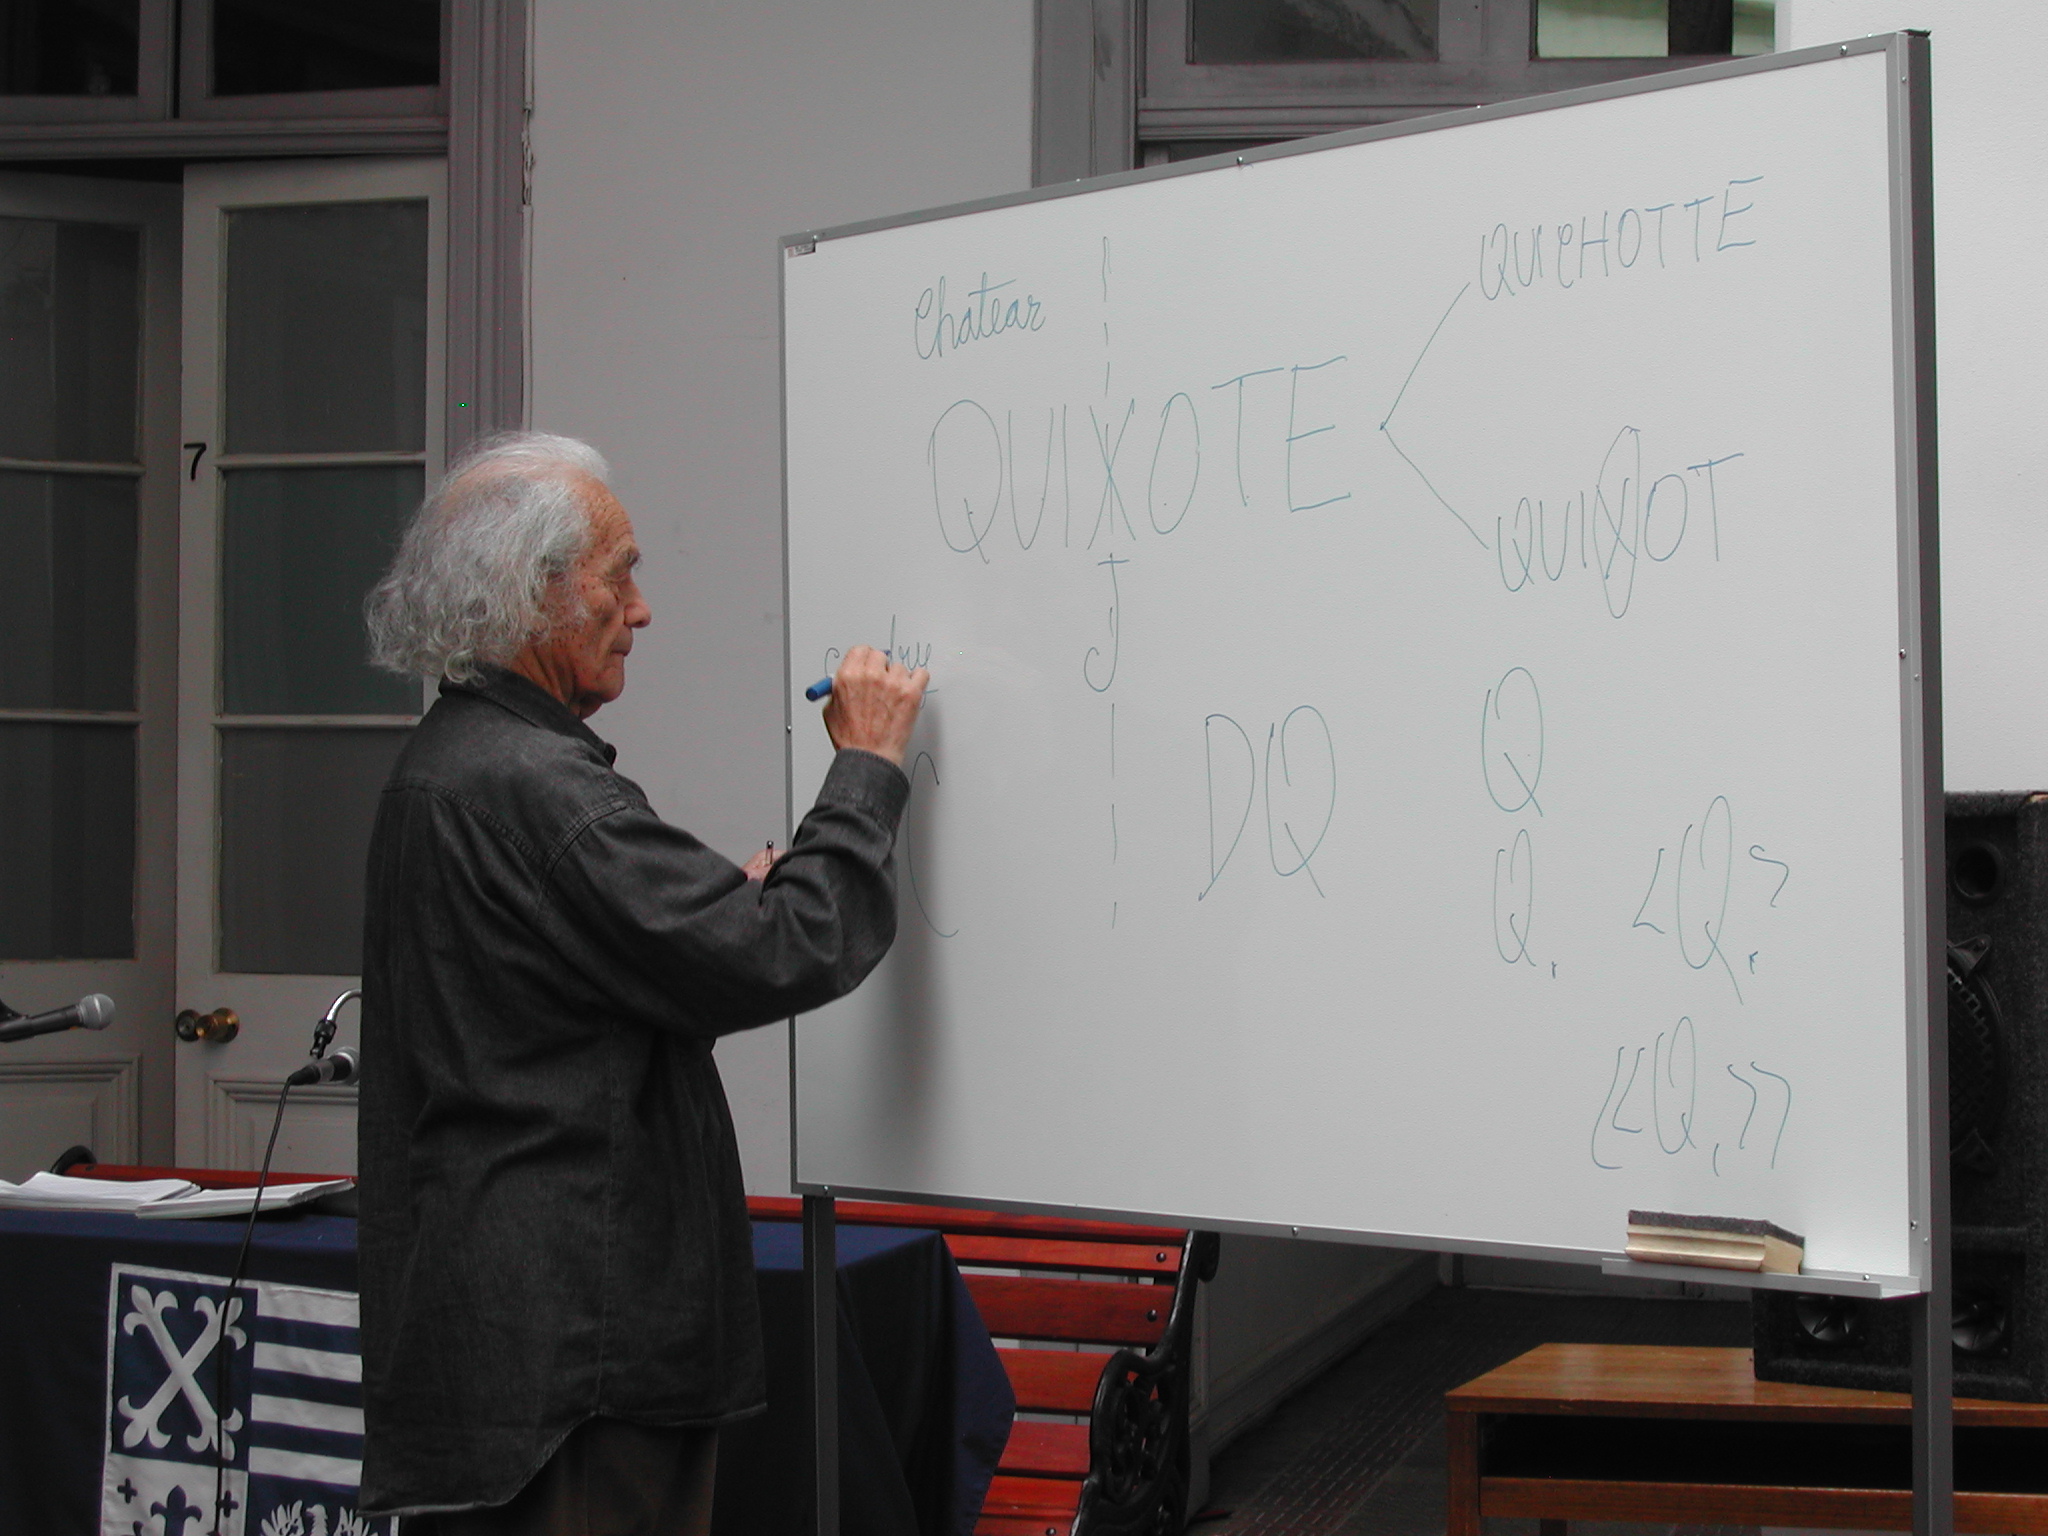 7
Chatear
QUIXOTE
QUICHOTTE
QUIXOT
J
C
DQ
Q
Q.
<Q.>
«Q,»